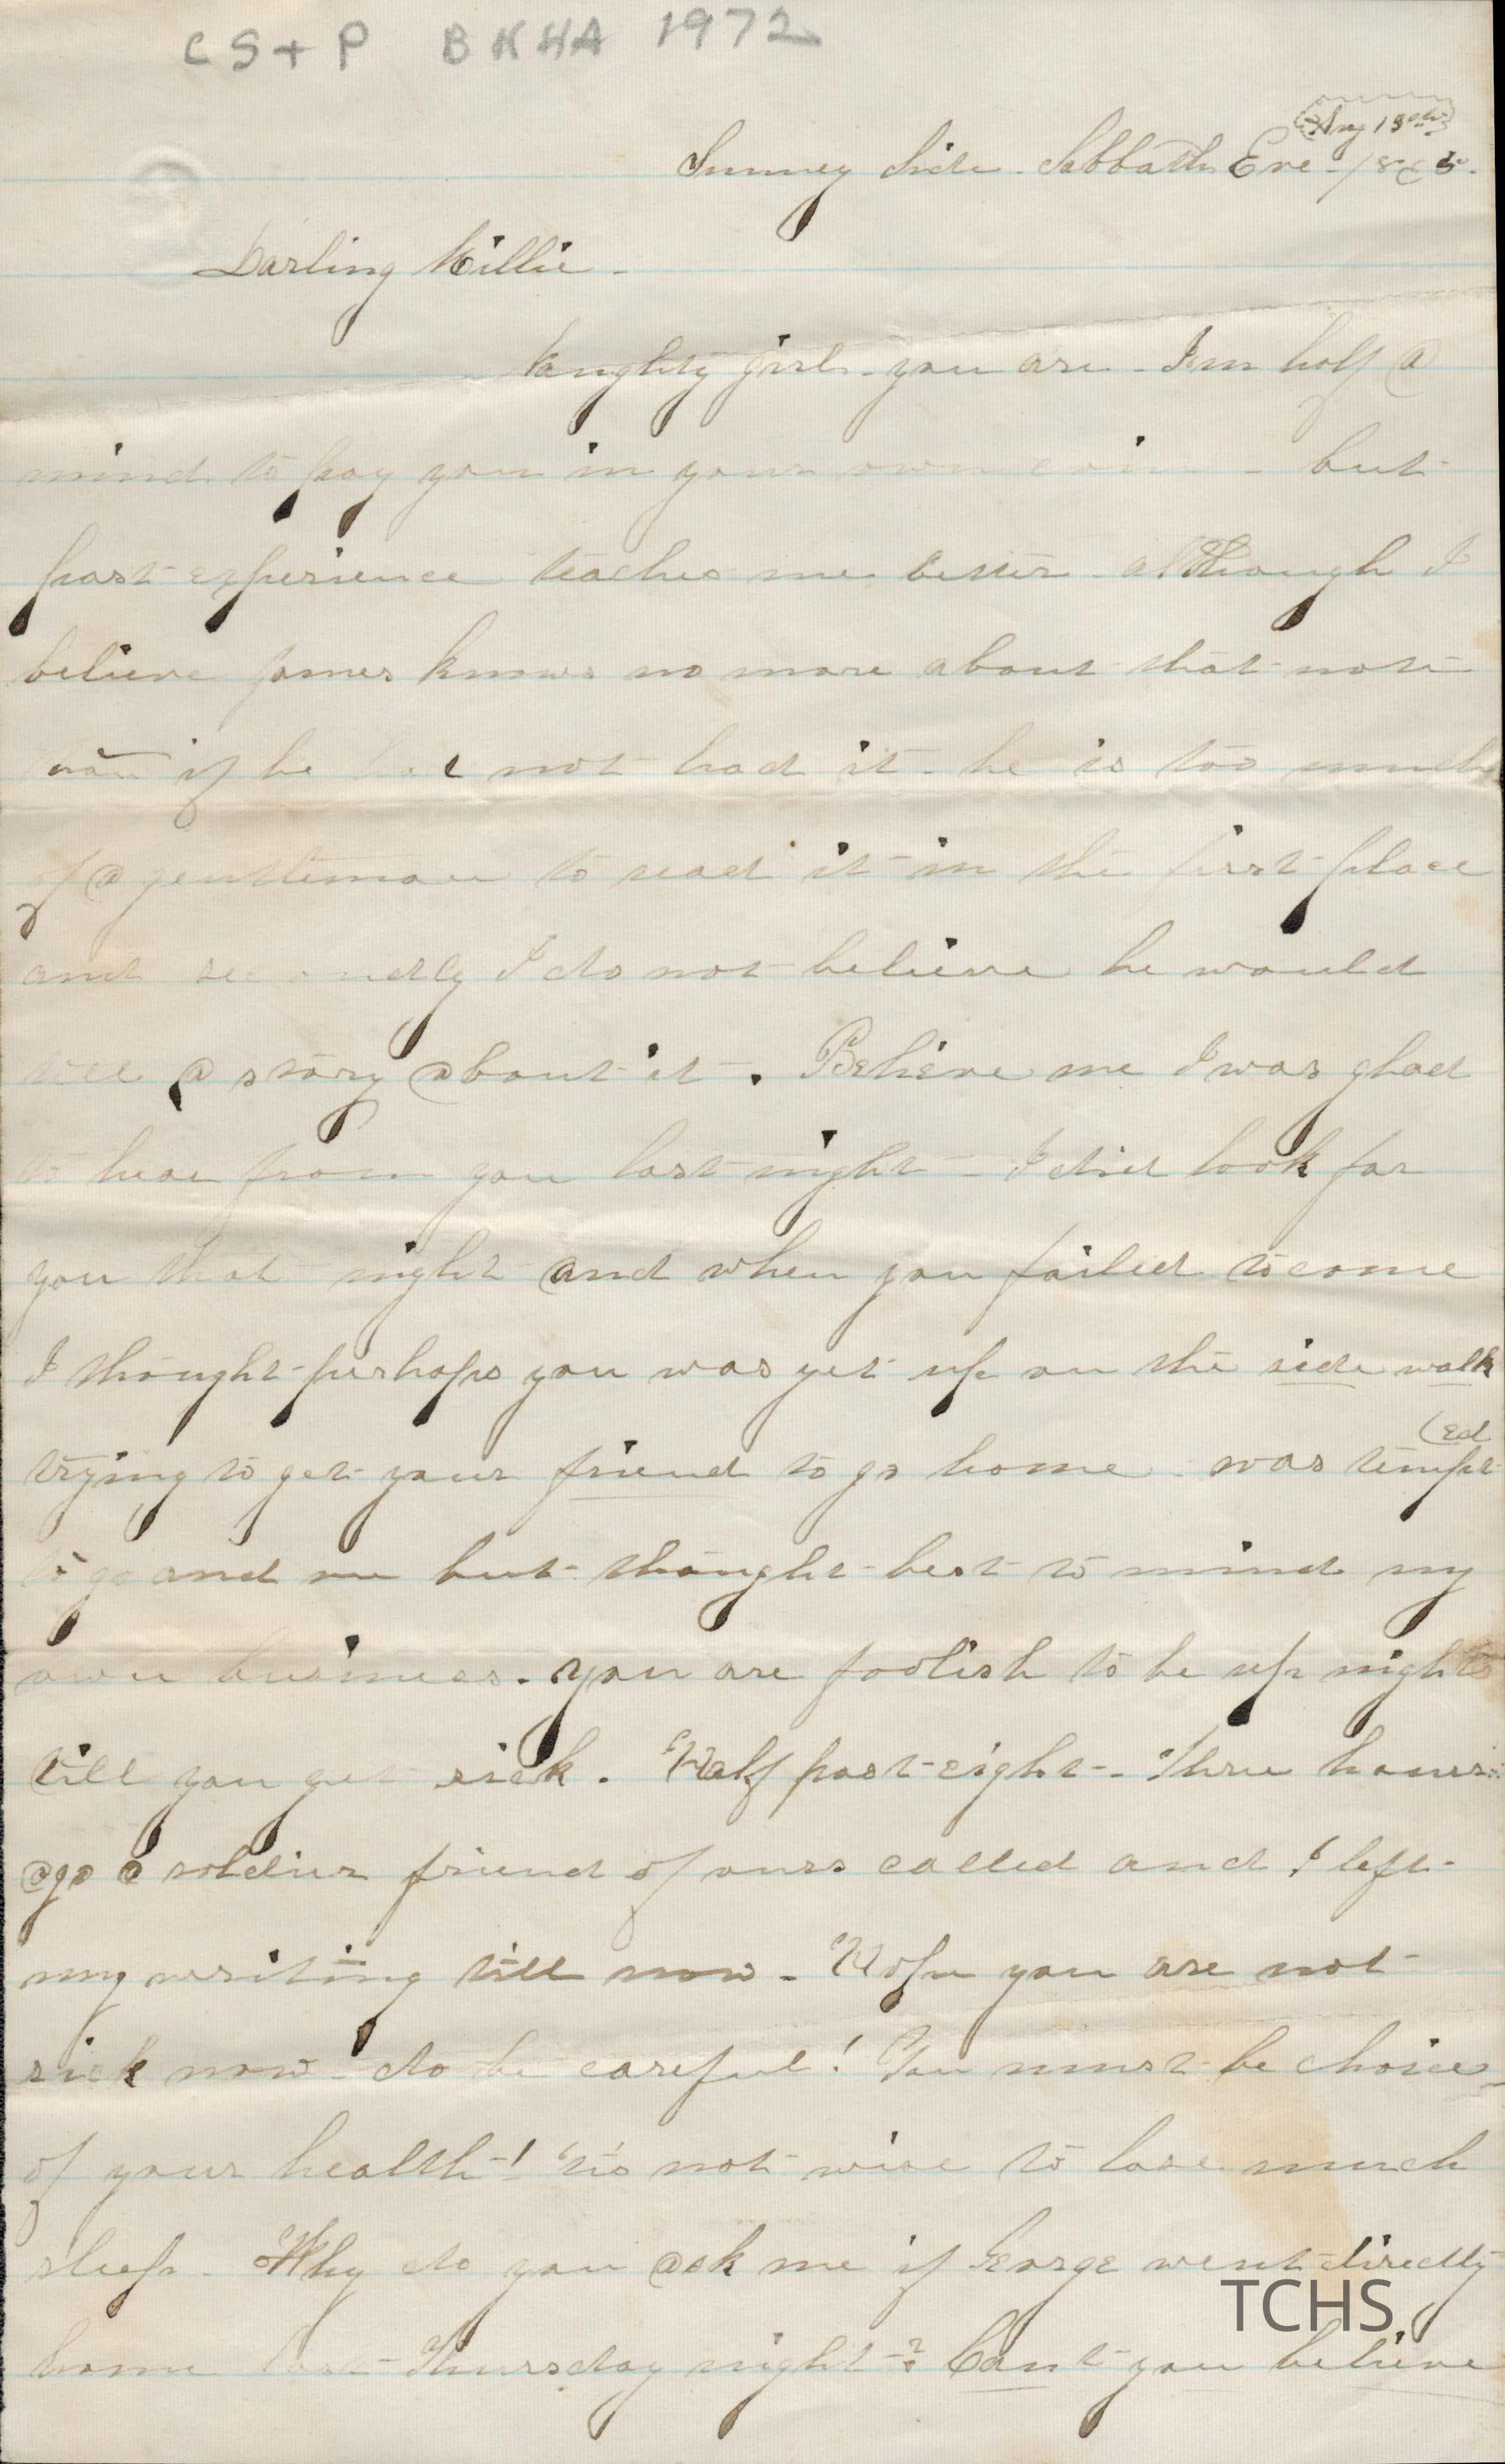 CS+P BKHA 1972
Aug 13th
Sunney Side - Sabbath Eve - 1865.
Darling Millie -
Naughty girl - you are - I'm half a
mind to pay you in your own coin - but
past experience teaches me better although I
believe James knows no more about that note
than if he had not had it - he is too much
of a gentleman to read it in the first place
and secondly I do not believe he would
tell a story about it. Believe me I was glad
to hear from you last night - I did look for
you that night and when you failed to come
I thought perhaps you was yet up on the side walk
trying to get your friend to go home - was tempt(ed
to go and see but thought best to mind my
own business. you are foolish to be up nights
till you get sick. Half past eight - Three hours
ago a soldier friend of ours called and I left
my writing till now - Hope you are not
sick now - do be careful! You must be choice
of your health! 'tis not wise to lose much
sleep. Why do you ask me if George went directly
home last Thursday night? Can't you believe
TCHS